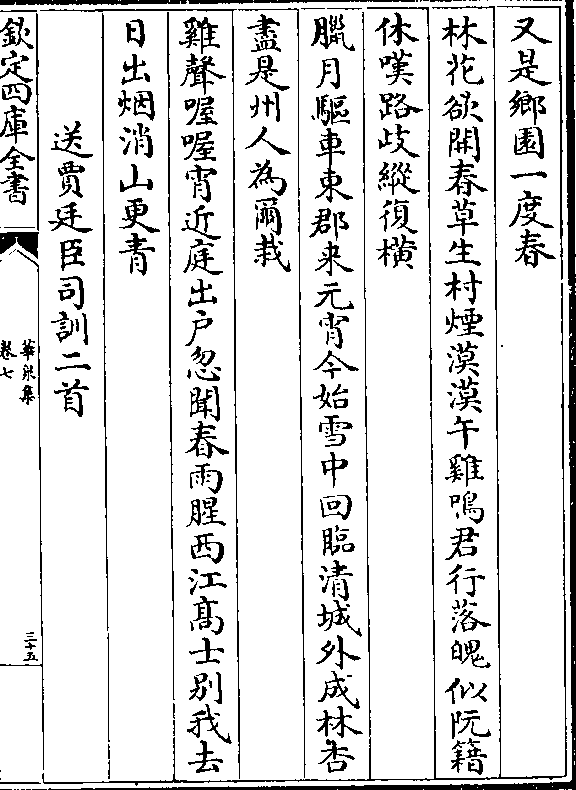 又是鄉園一度春
林花欲開春草生村煙漠漠午雞鳴君行落魄似阮籍
休嘆路歧縱復橫
臘月驅車東郡来元宵今始雪中回臨清城外成林杏
盡是州人為爾栽
雞聲喔喔宵近庭出户忽聞春雨腥西江髙士别我去
日出烟消山更青
送賈廷臣司訓二首
欽定四庫全書
華泉集
卷七
三十五